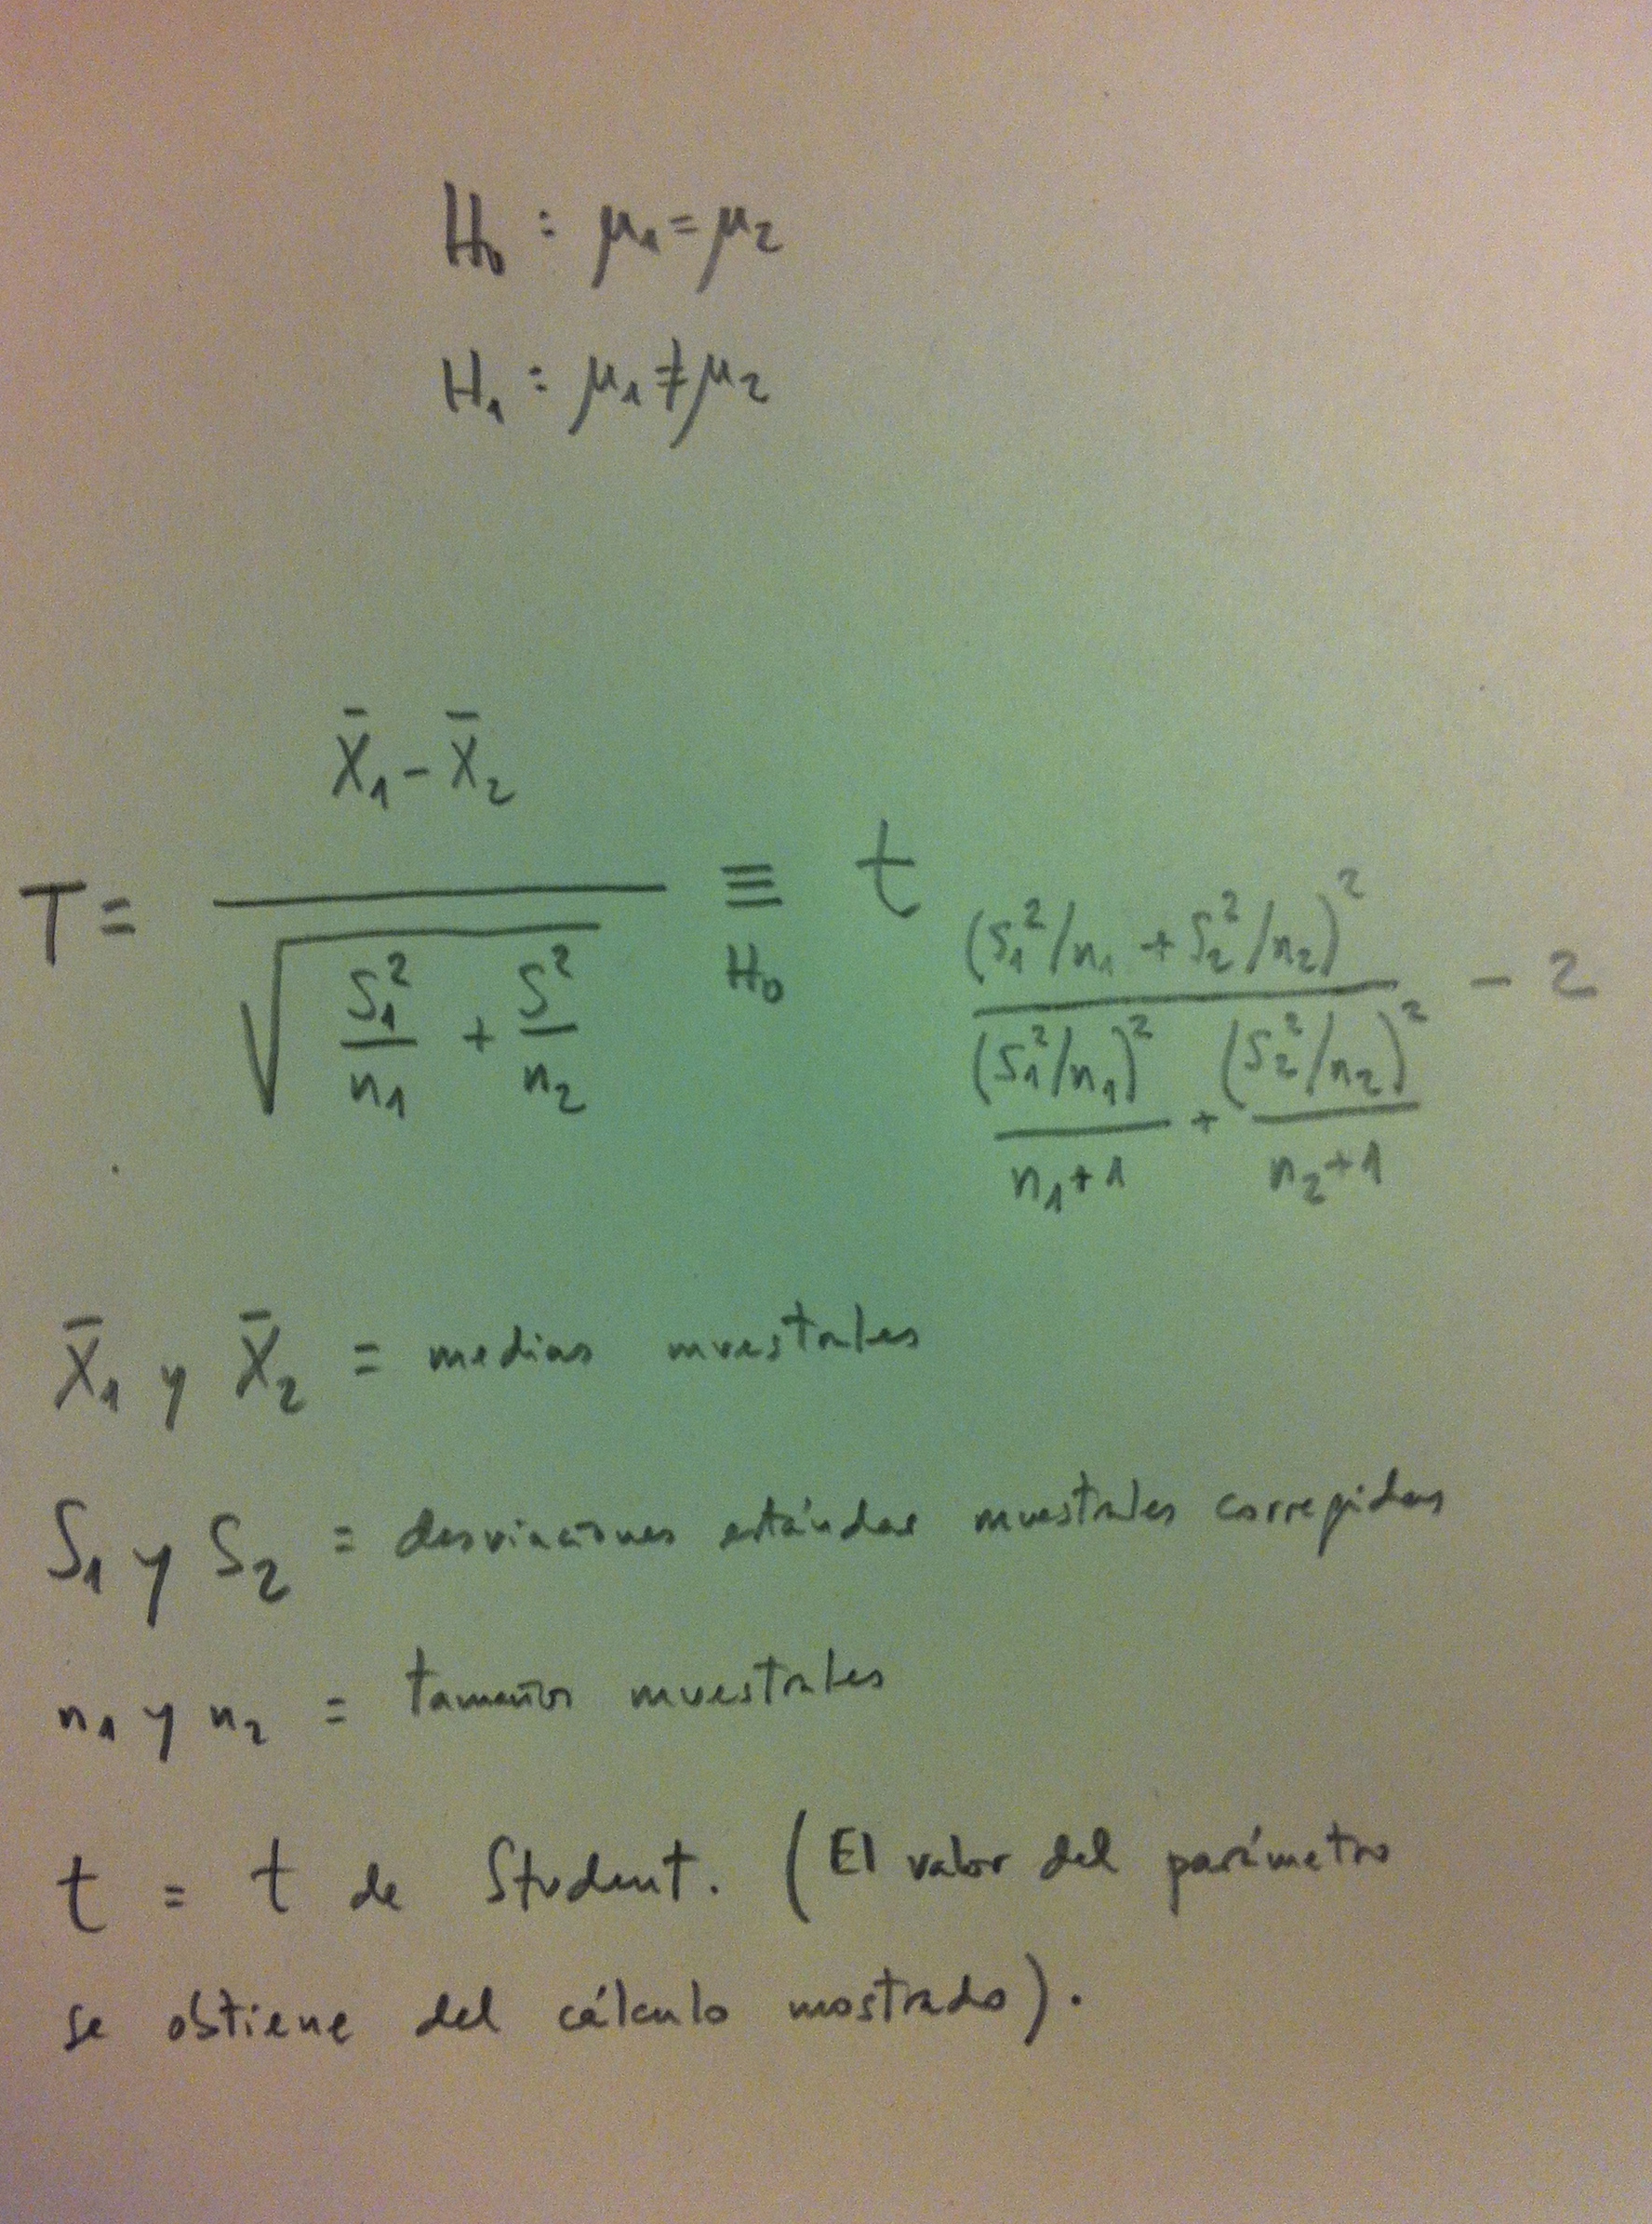 H₀ : μ₁ = μ₂
H₁ : μ₁ ≠ μ₂
X̄₁ - X̄₂
T = ――― ≡ t
√ S₁²/n₁ + S²/n₂
H₀
(S₁²/n₁ + S₂²/n₂)²
――― - 2
(S₁²/n₁)² + (S₂²/n₂)²
n₁+1 n₂+1
X̄₁ y X̄₂ = medias muestrales
S₁ y S₂ = desviaciones estándar muestrales corregidas
n₁ y n₂ = tamaños muestrales
t = t de Student. (El valor del parámetro
se obtiene del cálculo mostrado).